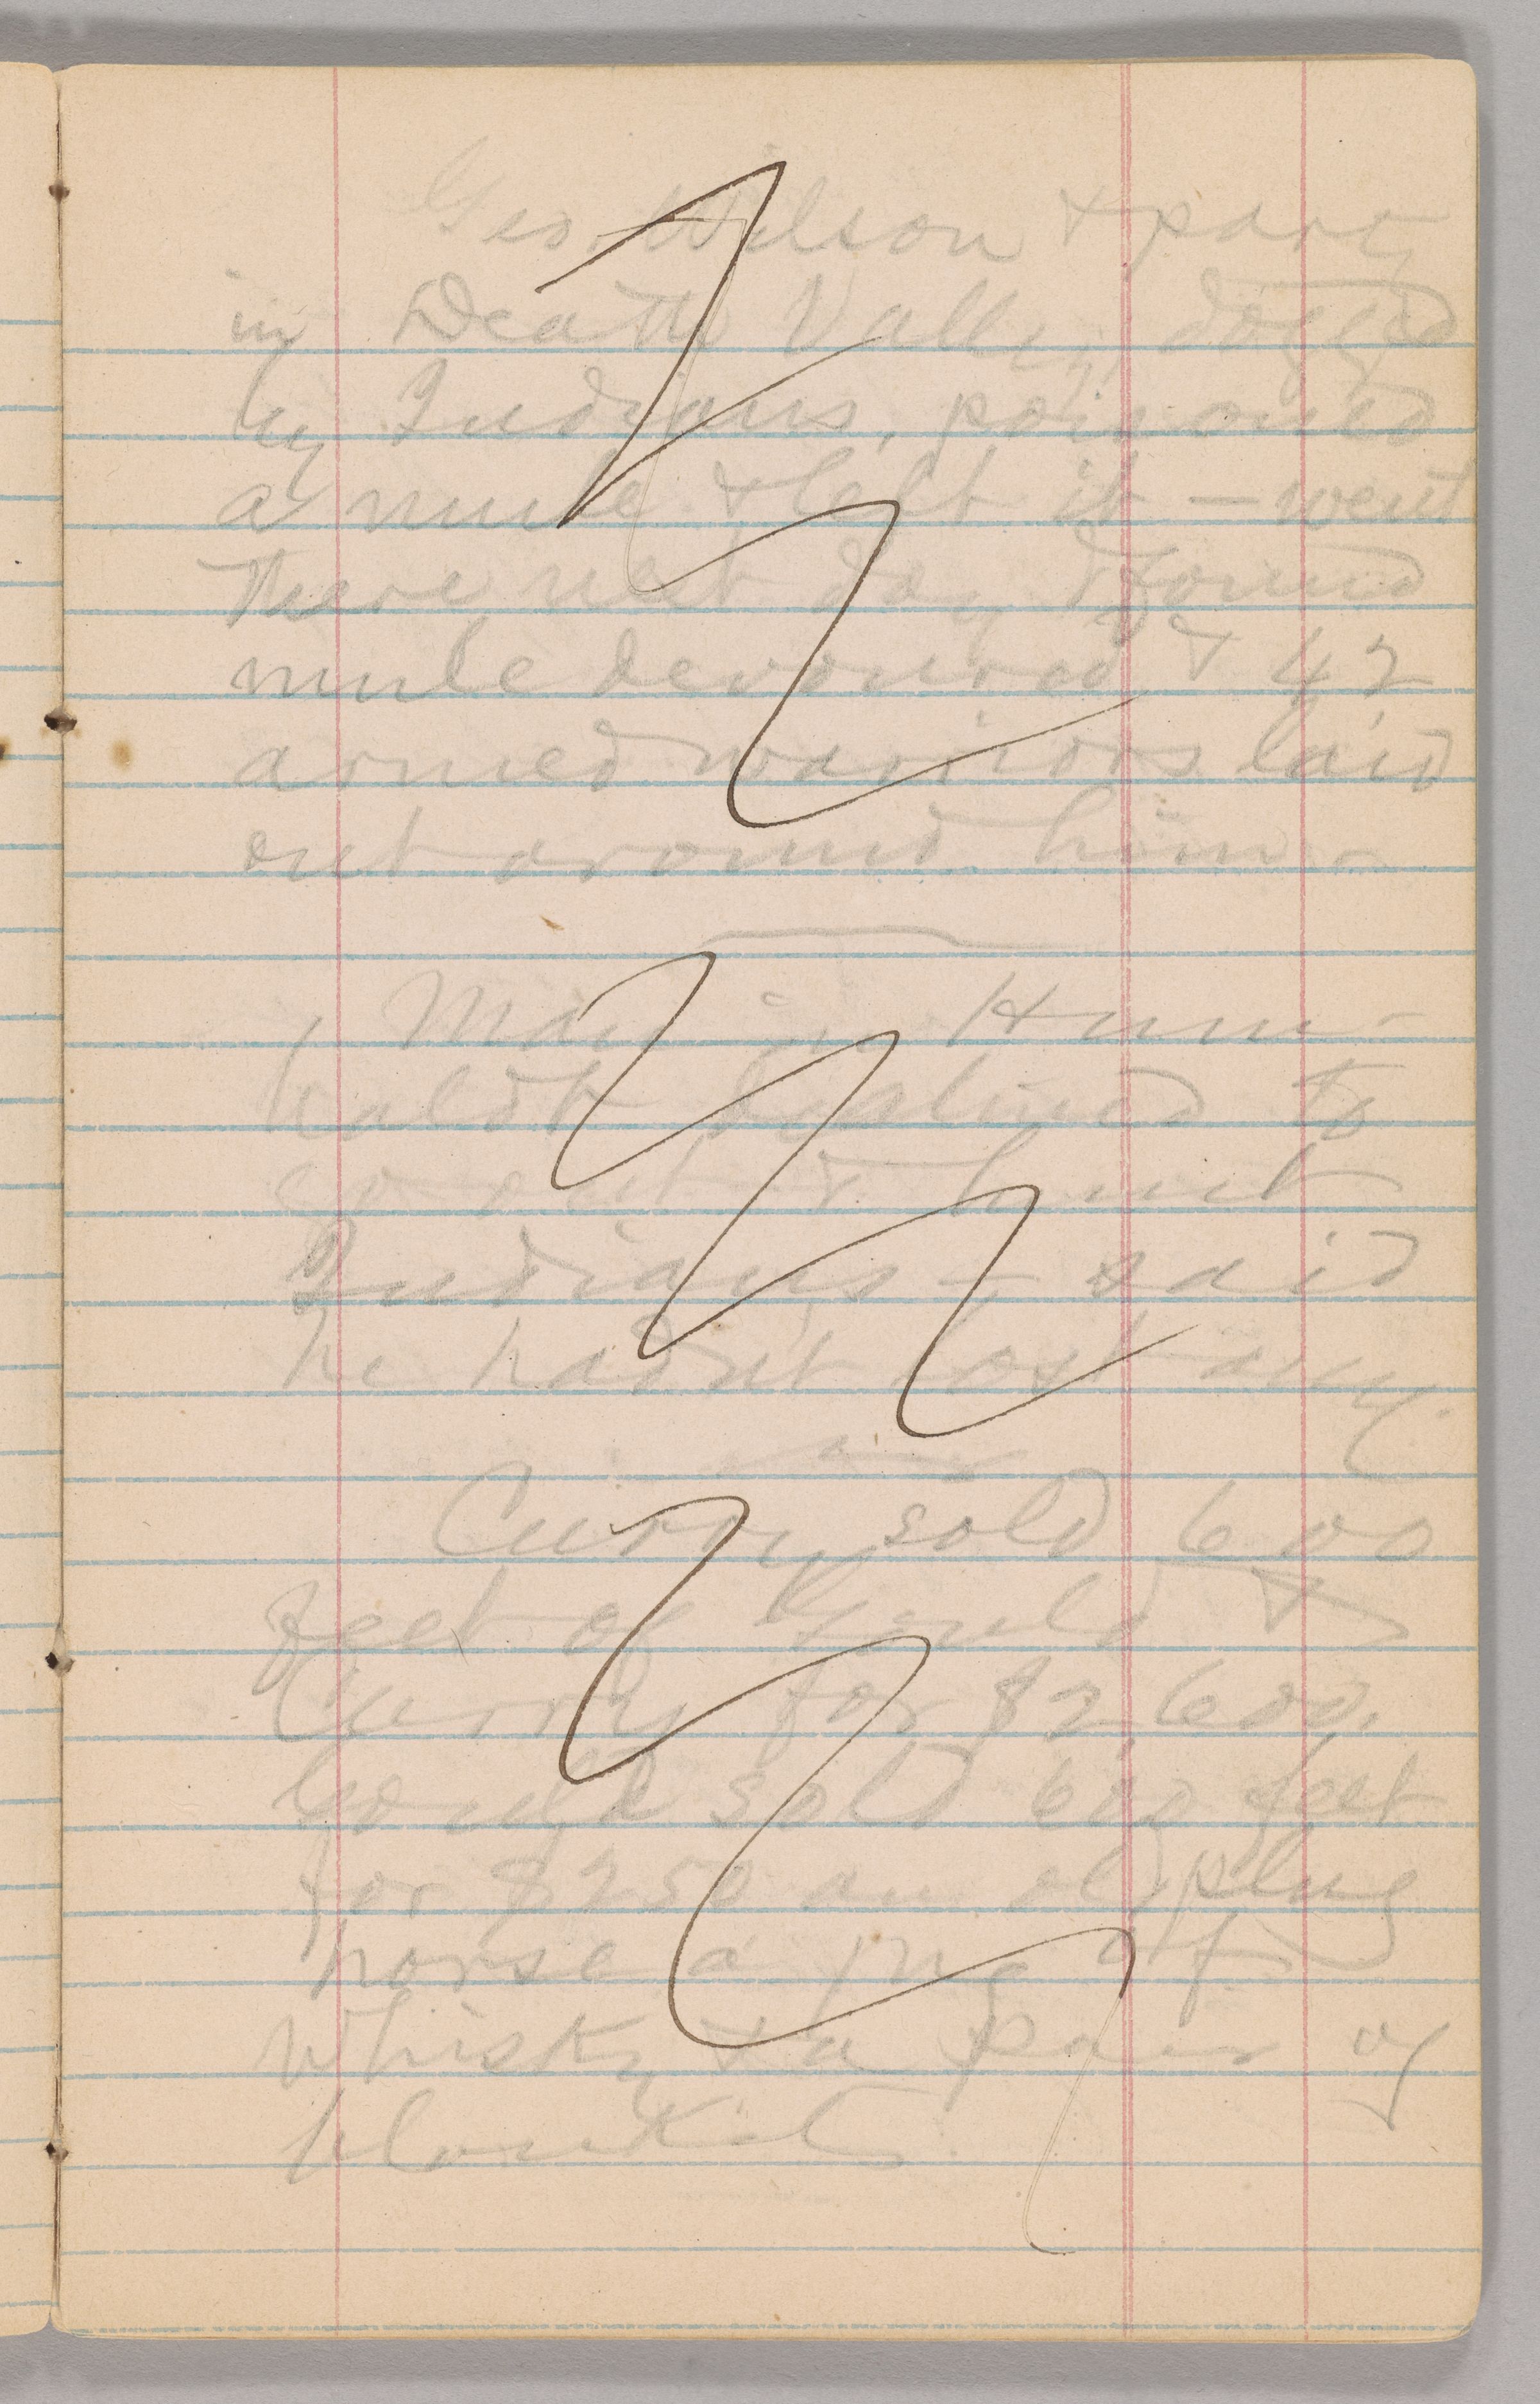 Geo. Wilson & party
in Death Valley, dogged
by Indians, poisoned
a mule & left it — went
there next day & found
mule devoured & 42
armed warriors laid
out around him.
Man in Hum-
boldt declined to
go out & hunt
Indians — said
he hadn't lost any.
Curry sold 600
feet of Gould &
Curry for $2,600.
Gould sold 600 feet
for $250 an old plug
horse a jug of
whisky & a pair of
blankets.